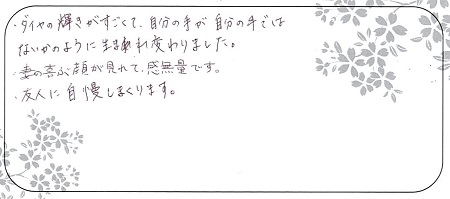 ・ダイヤの輝きがすごくて、自分の手が自分の手では
ないかのように生まれ変わりました。
・妻の喜ぶ顔が見れて、感無量です。
・友人に自慢しまくります。